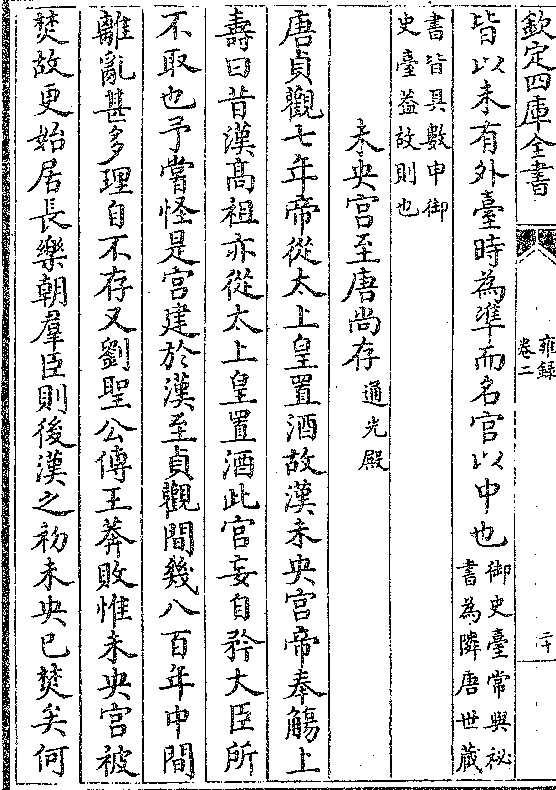 欽定四庫全書
雍録
卷二
二十
皆以未有外臺時為準而名官以中也御史臺常與祕
書為隣唐世藏
書皆具數申御
史臺葢故則也
未央宫至唐尚存通光殿
唐貞觀七年帝從太上皇置酒故漢未央宫帝奉觴上
壽曰昔漢髙祖亦從太上皇置酒此宫妄自矜大臣所
不取也予嘗怪是宫建於漢至貞觀間幾八百年中間
離亂甚多理自不存又劉聖公傳王莽敗惟未央宫被
焚故更始居長樂朝羣臣則後漢之初未央已焚矣何